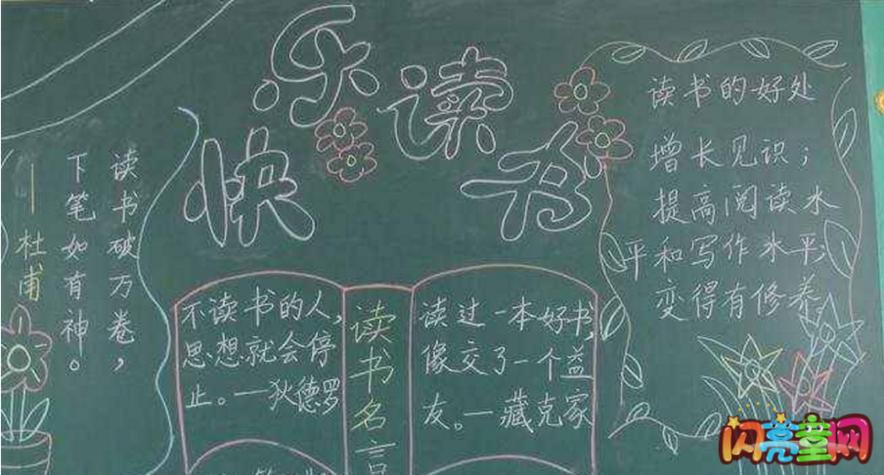 快乐读书
读书破万卷，
下笔如有神。
—杜甫
不读书的人，
思想就会停
止。—狄德罗
读书名言
读过一本好书，
像交了一个益
友。—藏克家
读书的好处
增长见识；
提高阅读水
平和写作水平；
变得有修养。
闪亮童网